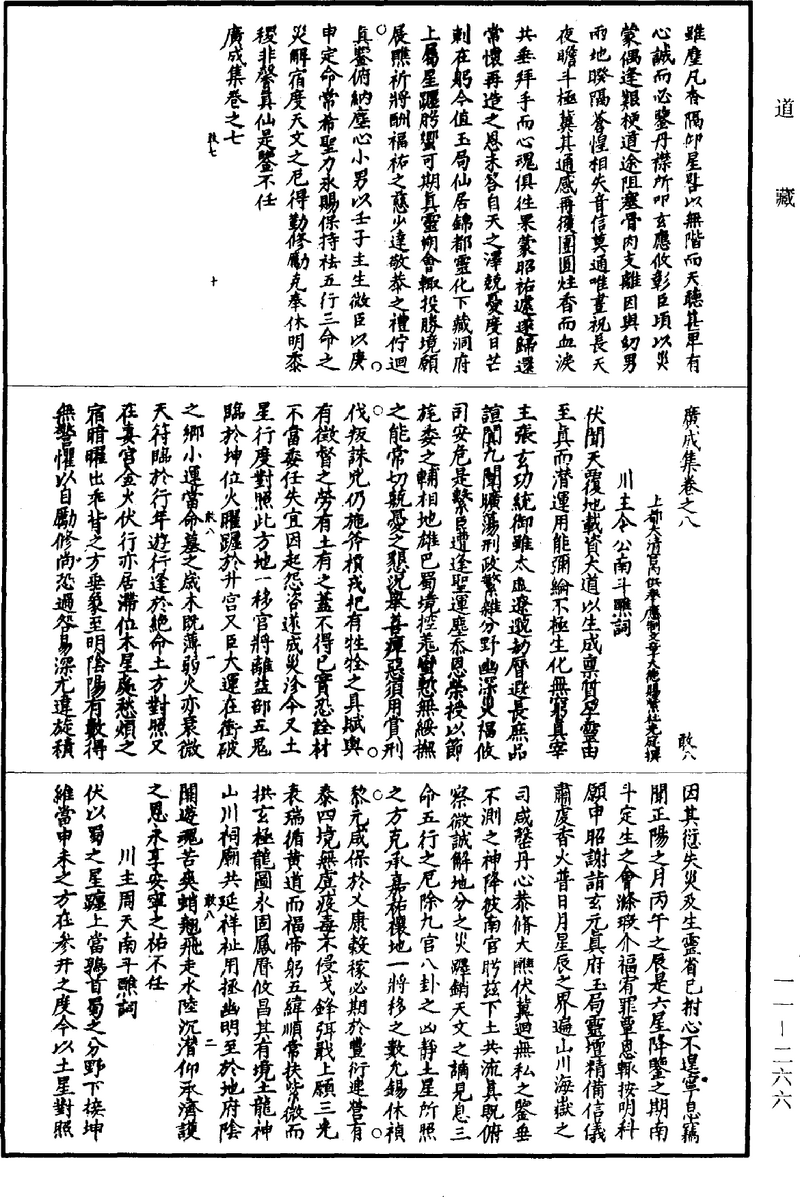 道藏
雖塵凡杳隔仰星昬以無階而天聽甚卑有
心誠而必鑒丹襟所叩玄應攸彰臣頃以災
蒙偶逢艱梗道途阻塞骨肉支離因與幼男
兩地暌隔蒼惶相失音信莫通唯晝祝長天
夜瞻斗極冀其通感再獲團圓炷香而血淚
共垂拜手而心魂俱往果蒙昭祐遽遂歸還
常懷再造之恩未答自天之澤兢憂度日芒
刺在躬今值玉局仙居錦都靈化下藏洞府
上屬星躔肹蠁可期真靈朔會輙投勝境願
展醮祈將酬福祐之慈少達敬恭之禮佇迴
真鑒俯納塵心小男以壬子主生微臣以庚
申定命常希聖力永賜保持祛五行三命之
災解宿度天文之厄得勤修勵克奉休明黍
稷非馨真仙是鑒不任
廣成集卷之七
敢七
十
廣成集卷之八
敢八
上都太清宮內供奉應制文章大德賜紫杜光庭撰
川主令公南斗醮詞
伏聞天覆地載資大道以生成稟質含靈由
至真而潛運用能彌綸不極生化無窮真宰
主張玄功統御雖太虛遼邈劫曆遐長庶品
諠闐九圍曠蕩刑政繁雜分野幽深災福攸
司安危是繫臣遭逢聖運塵忝恩榮授以節
旄委之輔相地雄巴蜀境控羌蠻慙無綏撫
之能常切兢憂之懇況舉善癉惡須用賞刑
伐叛誅兇仍施斧櫍戎祀有牲牷之具賦輿
有徵督之勞有土有之蓋不得已實恐詮材
不當委任失宜因起怨咨遂成災沴今又土
星行度對照此方地一移官將離益部五鬼
臨於坤位火曜躔於升宮又臣大運在衝破
之鄉小運當命墓之歲木既薄弱火亦衰微
天符臨於行年遊行逢於絕命土方對照又
在妻宮金火伏行亦居滯位木星處愁煩之
宿暗曜出乖背之方垂象至明陰陽有數得
無驚懼以自勵修尚恐過咎易深尤違旋積
敢八
一
因其愆失災及生靈省已捫心不遑寧息竊
聞正陽之月丙午之辰是六星降鑒之期南
斗定生之會滌瑕介福宥罪覃恩輙按明科
願申昭謝請玄元真府玉局靈壇精備信儀
肅虔香火普日月星辰之界遍山川海嶽之
司咸罄丹心恭脩大醮伏冀迴無私之鑒垂
不測之神降彼南宮肹茲下土共流真貺俯
察微誠解地分之災躔銷天文之謫見息三
命五行之厄除九宮八卦之凶靜土星所照
之方克承嘉祐禳地一將移之數允錫休禎
黎元咸保於乂康榖稼必期於豐衍連營有
泰四境無虞疫毒不侵戈鋒弭戢上願三光
表瑞循黃道而福帝躬五緯順常扶紫微而
拱玄極龍圖永固鳳曆攸昌其有境土龍神
山川祠廟共延祥祉用拯幽明至於地府陰
關遊魂苦爽蛸翹飛走水陸沉潛仰承濟護
之恩永享安寧之祐不任
川主周天南斗醮詞
伏以蜀之星躔上當鶉首蜀之分野下接坤
維當申未之方在參井之度今以土星對照
敢八
二
一一—二六六